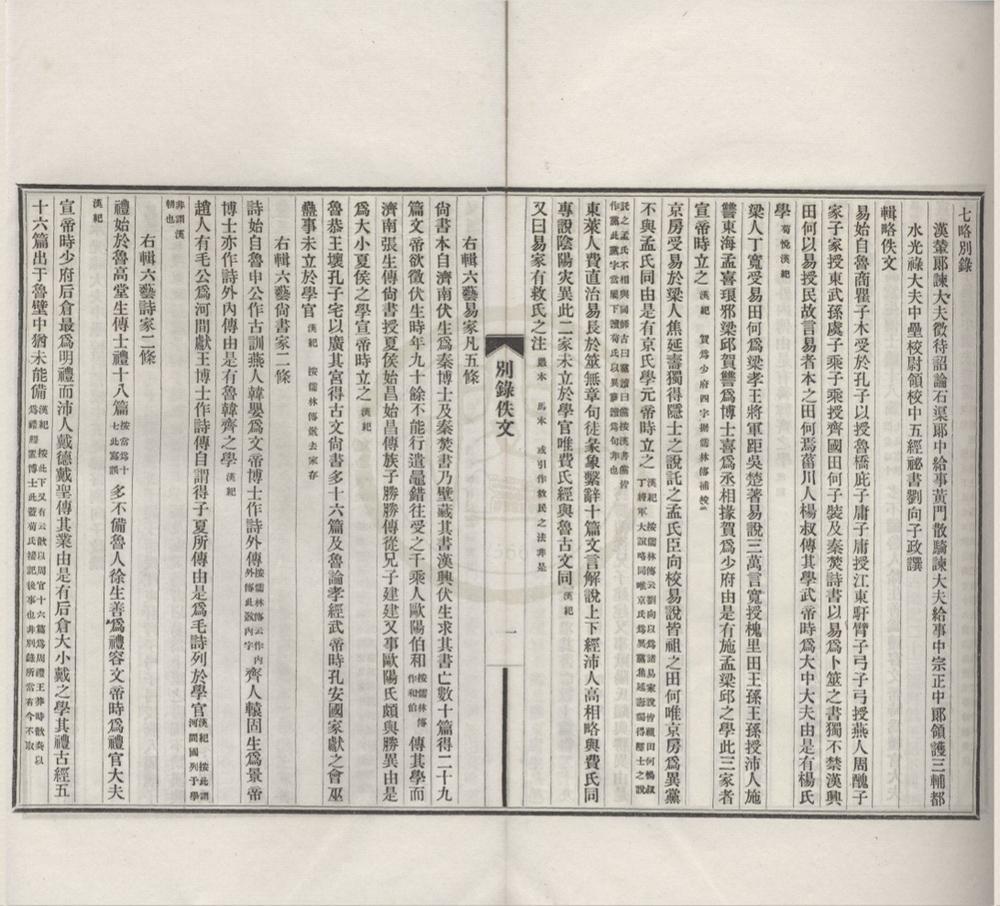 七略別錄
漢輦郎諫大夫徵待詔論石渠郎中給事黃門散騎諫大夫給事中宗正中郎領護三輔都
水光祿大夫中壘校尉領校中五經祕書劉向子政譔
輯略佚文
易始自魯商瞿子木受於孔子以授魯橋庇子庸子庸授江東馯臂子弓子弓授燕人周醜子
家子家授東武孫虞子乘子乘授齊國田何子裝及秦焚詩書以易爲卜筮之書獨不禁漢興
田何以易授民故言易者本之田何焉菑川人楊叔傳其學武帝時爲大中大夫由是有楊氏
學荀悅漢紀
梁人丁寬受易田何爲梁孝王將軍距吳楚著易說三萬言寬授槐里田王孫王孫授沛人施
讐東海孟喜琅邪梁邱賀讐爲博士喜爲丞相掾賀爲少府由是有施孟梁邱之學此三家者
宣帝時立之漢紀 賀爲少府四字據儒林傳補校
京房受易於梁人焦延壽獨得隱士之說託之孟氏臣向校易說皆祖之田何唯京房爲異黨
不與孟氏同由是有京氏學元帝時立之漢紀 按儒林傳云劉向以爲諸易家說皆祖田何楊叔丁將軍大說略同唯京氏爲異黨焦延壽獨得隱士之說
託之孟氏不相與同師古曰黨讀曰儻按漢書儻皆作黨此黨字當屬下讀荀氏以異黨讀爲句非也
東萊人費直治易長於筮無章句徒彖象繫辭十篇文言解說上下經沛人高相略與費氏同
專說陰陽灾異此二家未立於學官唯費氏經與魯古文同漢紀
又曰易家有救氏之注嚴本 馬本 或引作救民之法非是
右輯六藝易家凡五條
尙書本自濟南伏生爲秦博士及秦焚書乃壁藏其書漢興伏生求其書亡數十篇得二十九
篇文帝欲徵伏生時年九十餘不能行遣鼂錯往受之千乘人歐陽伯和按儒林傳作和伯傳其學而
濟南張生傳尙書授夏侯始昌始昌傳族子勝勝傳從兄子建建又事歐陽氏頗與勝異由是
爲大小夏侯之學宣帝時立之漢紀
魯恭王壞孔子宅以廣其宮得古文尙書多十六篇及魯論孝經武帝時孔安國家獻之會巫
蠱事未立於學官漢紀 按儒林傳獻去家存
右輯六藝尙書家二條
詩始自魯申公作古訓燕人韓嬰爲文帝博士作詩外傳按儒林傳云作內外傳此敚內字齊人轅固生爲景帝
博士亦作詩外內傳由是有魯韓齊之學漢紀
趙人有毛公爲河間獻王博士作詩傳自謂得子夏所傳由是爲毛詩列於學官漢紀 按此謂河間國列于學
非謂漢朝也
右輯六藝詩家二條
禮始於魯高堂生傳士禮十八篇按當爲十七此寫誤多不備魯人徐生善爲禮容文帝時爲禮官大夫
漢紀
宣帝時少府后倉最爲明禮而沛人戴德戴聖傳其業由是有后倉大小戴之學其禮古經五
十六篇出于魯壁中猶未能備漢紀 按此下又有云歆以周官十六篇爲周禮王莽時歆奏以爲禮經置博士此蓋荀氏續記後事也非別錄所當有今不取
別錄佚文
一